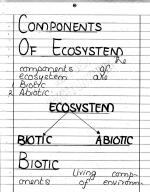 COMPONENTS
OF ECOSYSTEM
the
components of
ecosystem are
Biotic
2 Abiotic
ECOSYSTEM
BIOTIC ABIOTIC
BIOTIC
Living comp-
onents of environm-